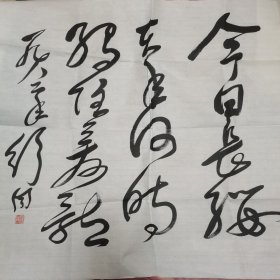 今日长缨
在手何时
缚住苍龙